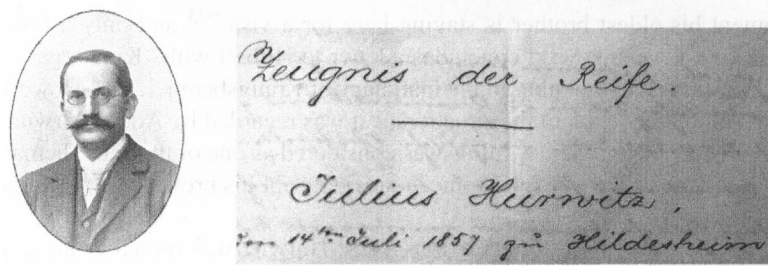 Zeugnis der Reife.
Julius Hurwitz,
den 14ten Juli 1857 zu Hildesheim